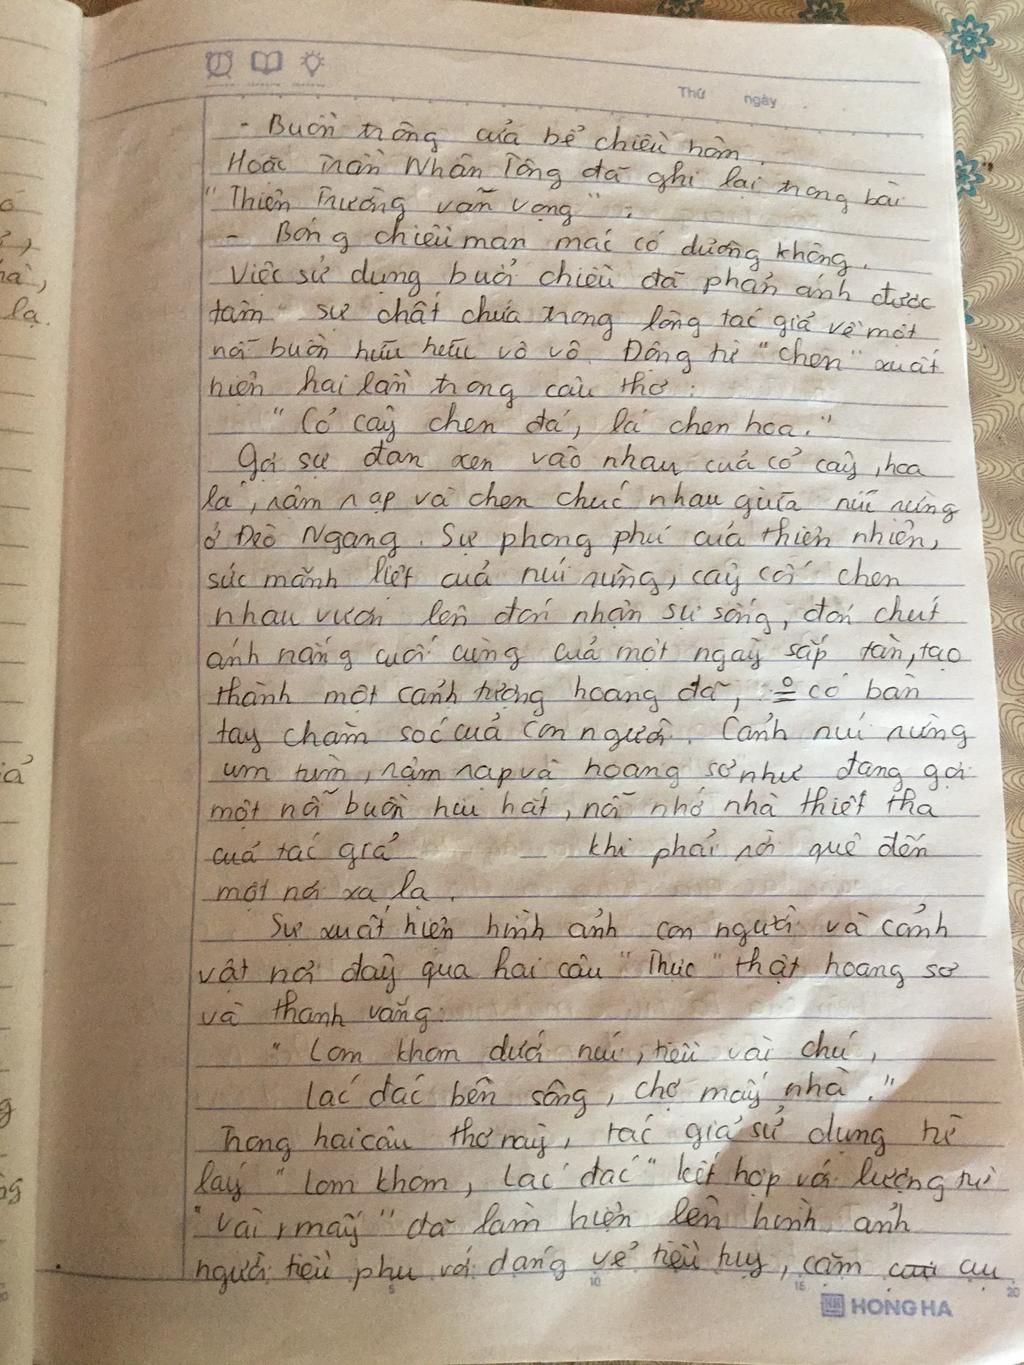 Thứ ngày
- Buồn trông cửa bể chiều hôm.
Hoặc Trần Nhân Tông đã ghi lại trong bài
"Thiên Trường vãn vọng":
- Bóng chiều man mác có dường không.
Việc sử dụng buổi chiều đã phản ánh được
tâm sự chất chứa trong lòng tác giả về một
nỗi buồn hữu hữu vô vô. Động từ "chen" xuất
hiện hai lần trong câu thơ:
"Cỏ cây chen đá, lá chen hoa."
Gợi sự đan xen vào nhau của cỏ cây, hoa
lá, rậm rạp và chen chúc nhau giữa núi rừng
ở Đèo Ngang. Sự phong phú của thiên nhiên,
sức mãnh liệt của núi rừng, cây cối chen
nhau vươn lên đón nhận sự sống, đón chút
ánh nắng cuối cùng của một ngày sắp tàn, tạo
thành một cảnh tượng hoang dã, o có bàn
tay chăm sóc của con người. Cảnh núi rừng
um tùm, rậm rạp và hoang sơ như đang gợi
một nỗi buồn hiu hắt, nỗi nhớ nhà thiết tha
của tác giả khi phải rời quê đến
một nơi xa lạ.
Sự xuất hiện hình ảnh con người và cảnh
vật nơi đây qua hai câu "Thực" thật hoang sơ
và thanh vắng:
"Lom khom dưới núi, tiều vài chú,
Lác đác bên sông, chợ mấy nhà."
Trong hai câu thơ này, tác giả sử dụng từ
láy "lom khom, lác đác" kết hợp với lượng từ
"vài, mấy" đã làm hiện lên hình ảnh
người tiều phu với dáng vẻ tiều tụy, cặm cụ
5 10 15 20
HONG HA